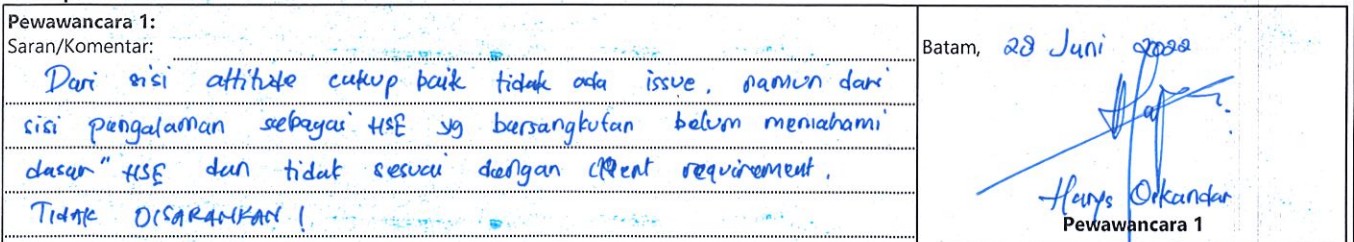 Pewawancara 1:
Saran/Komentar:
Dari sisi attitude cukup baik tidak ada issue, namun dari
sisi pengalaman sebagai HSE yg bersangkutan belum memahami
dasar" HSE dan tidak sesuai dengan client requirement.
TIDAK DISARANKAN !
Batam, 28 Juni 2022
Harys
Pewawancara 1